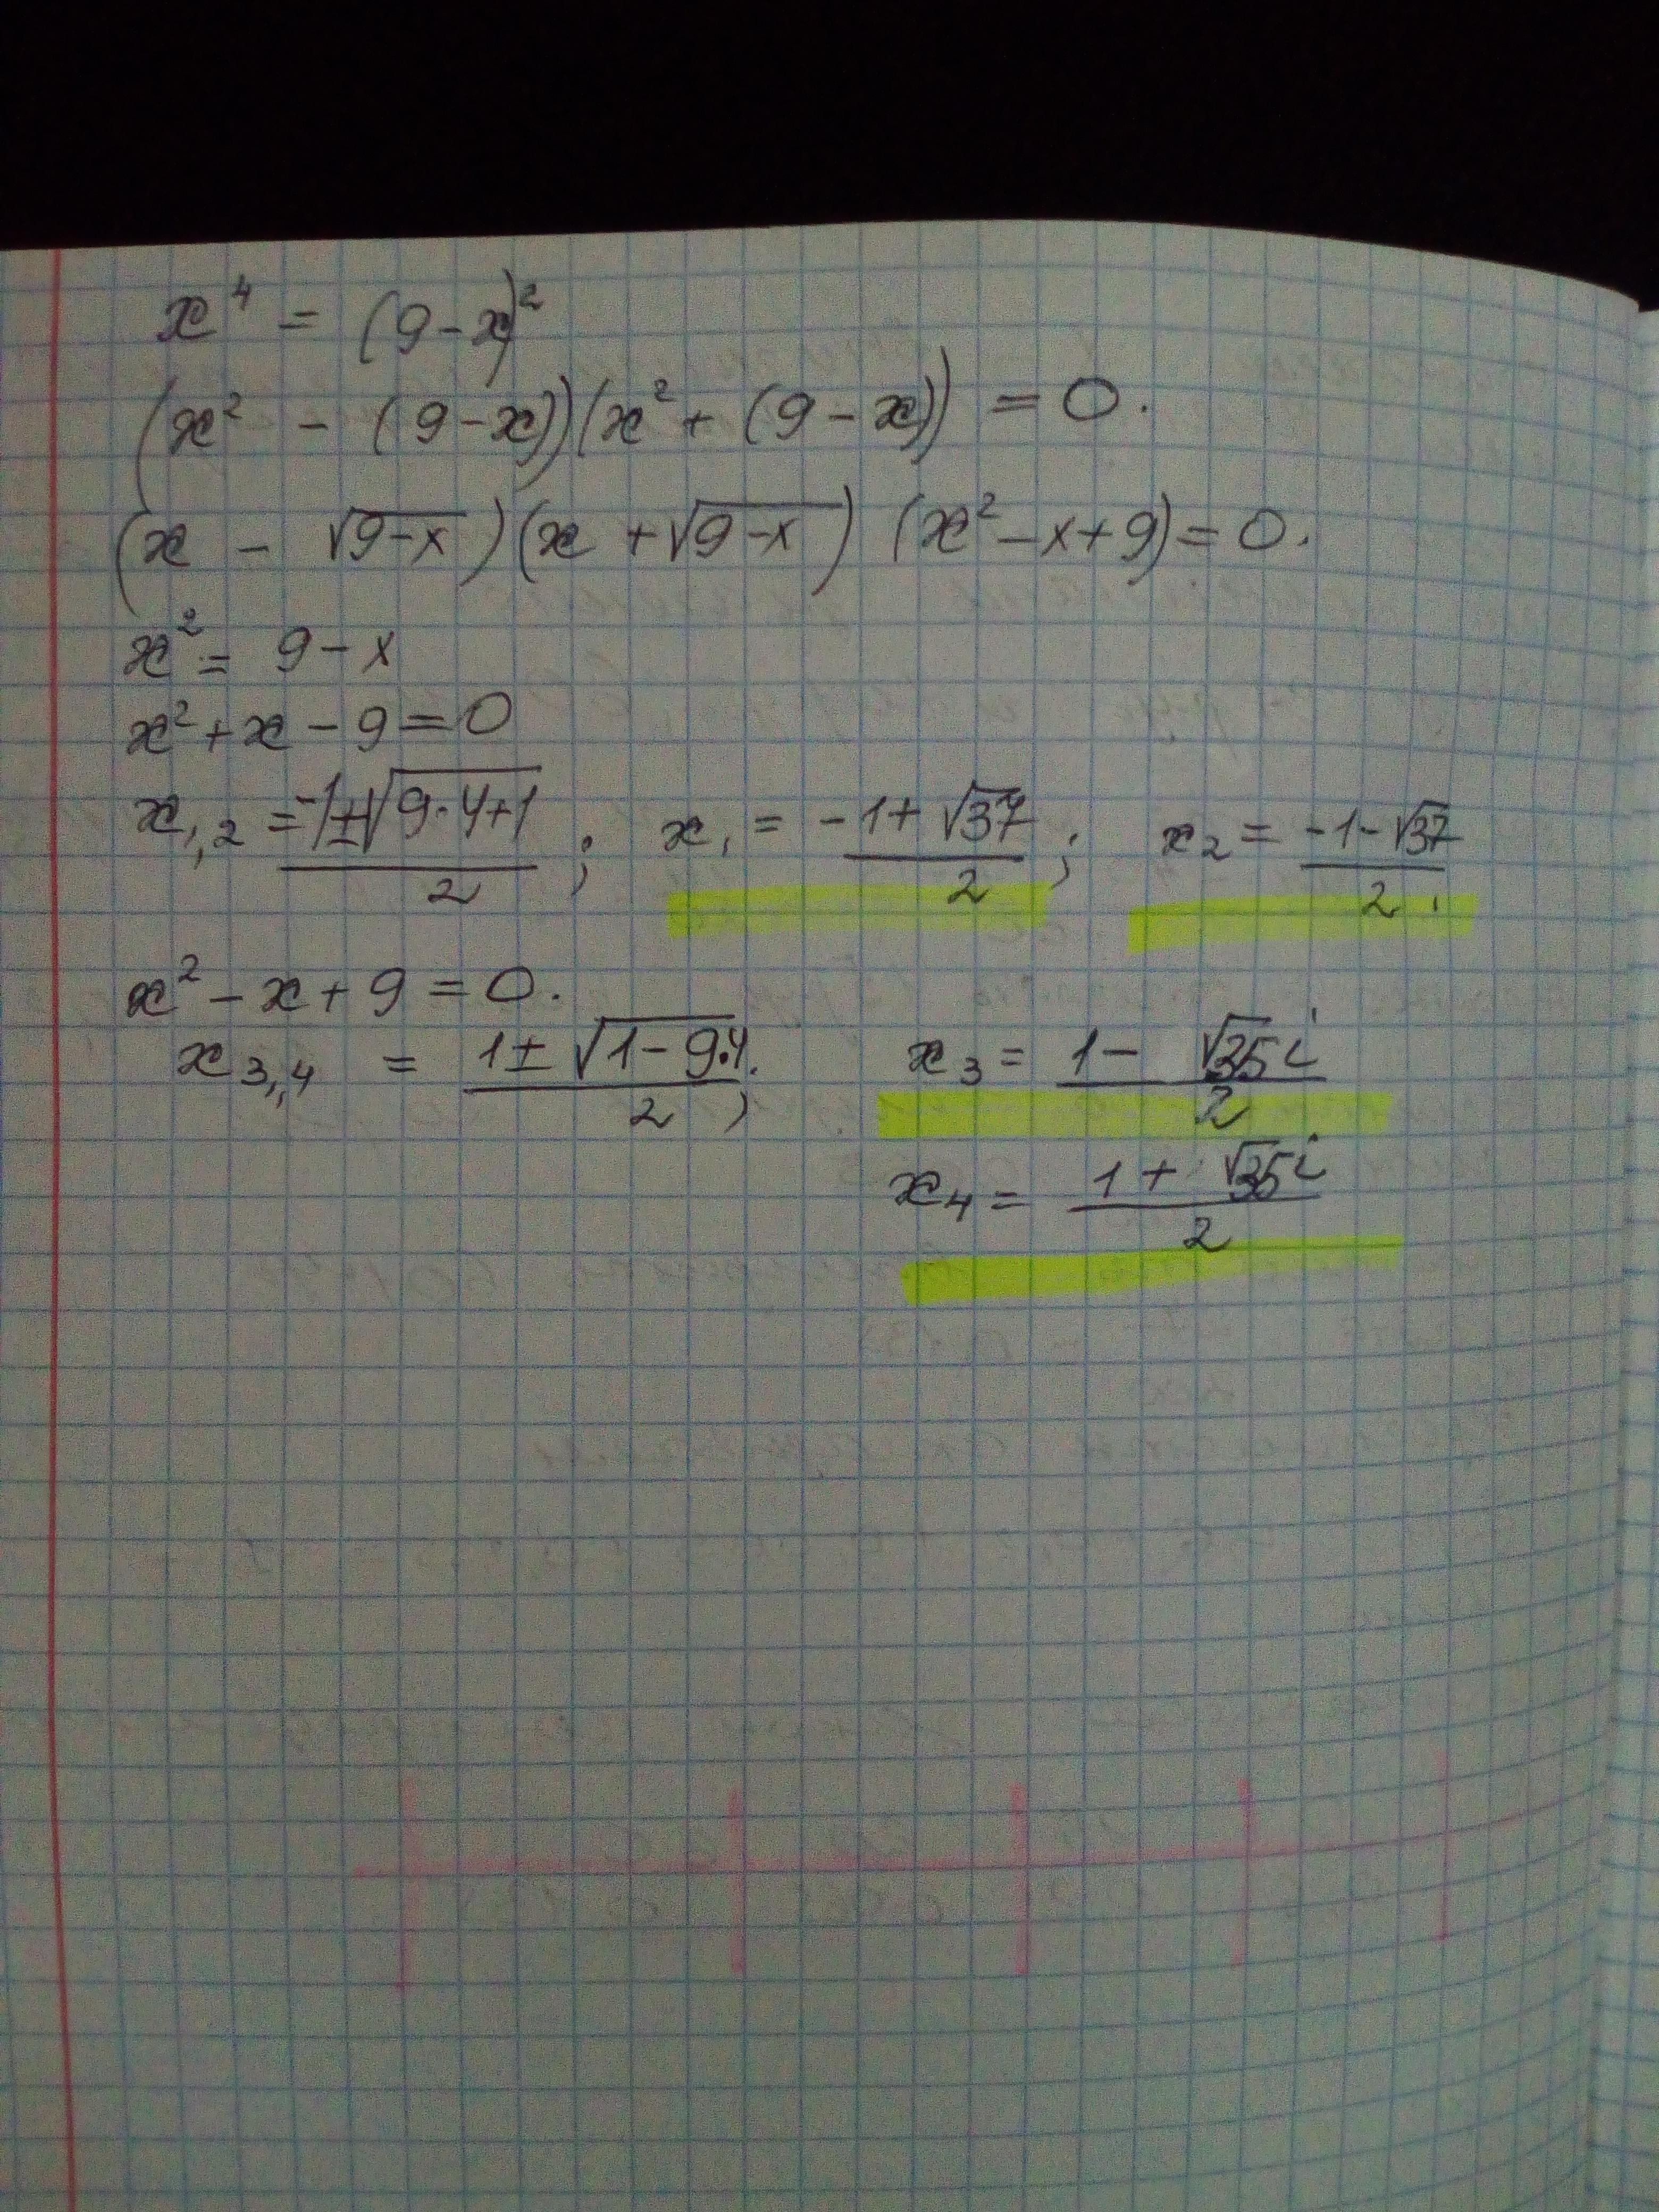 x⁴ = (9-x)²
(x² - (9-x))(x² + (9-x)) = 0.
(x - √(9-x))(x + √(9-x)) (x² - x + 9) = 0.
x² = 9 - x
x² + x - 9 = 0
x₁,₂ = (-1 ± √(9·4+1))/2 ; x₁ = (-1 + √37)/2 ; x₂ = (-1 - √37)/2.
x² - x + 9 = 0.
x₃,₄ = (1 ± √(1 - 9·4))/2 ; x₃ = (1 - √35 i)/2
x₄ = (1 + √35 i)/2